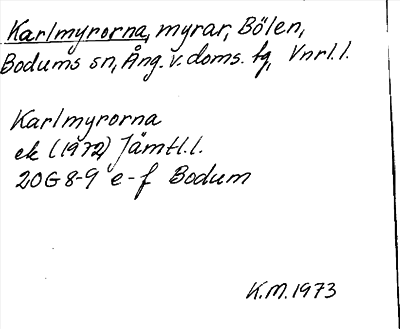 Karlmyrorna, myrar, Bölen,
Bodums sn, Ång. v. doms. tg, Vnrl.l.
Karlmyrorna
ek (1972) Jämtl.l.
20G 8-9 e-f Bodum
K.M. 1973